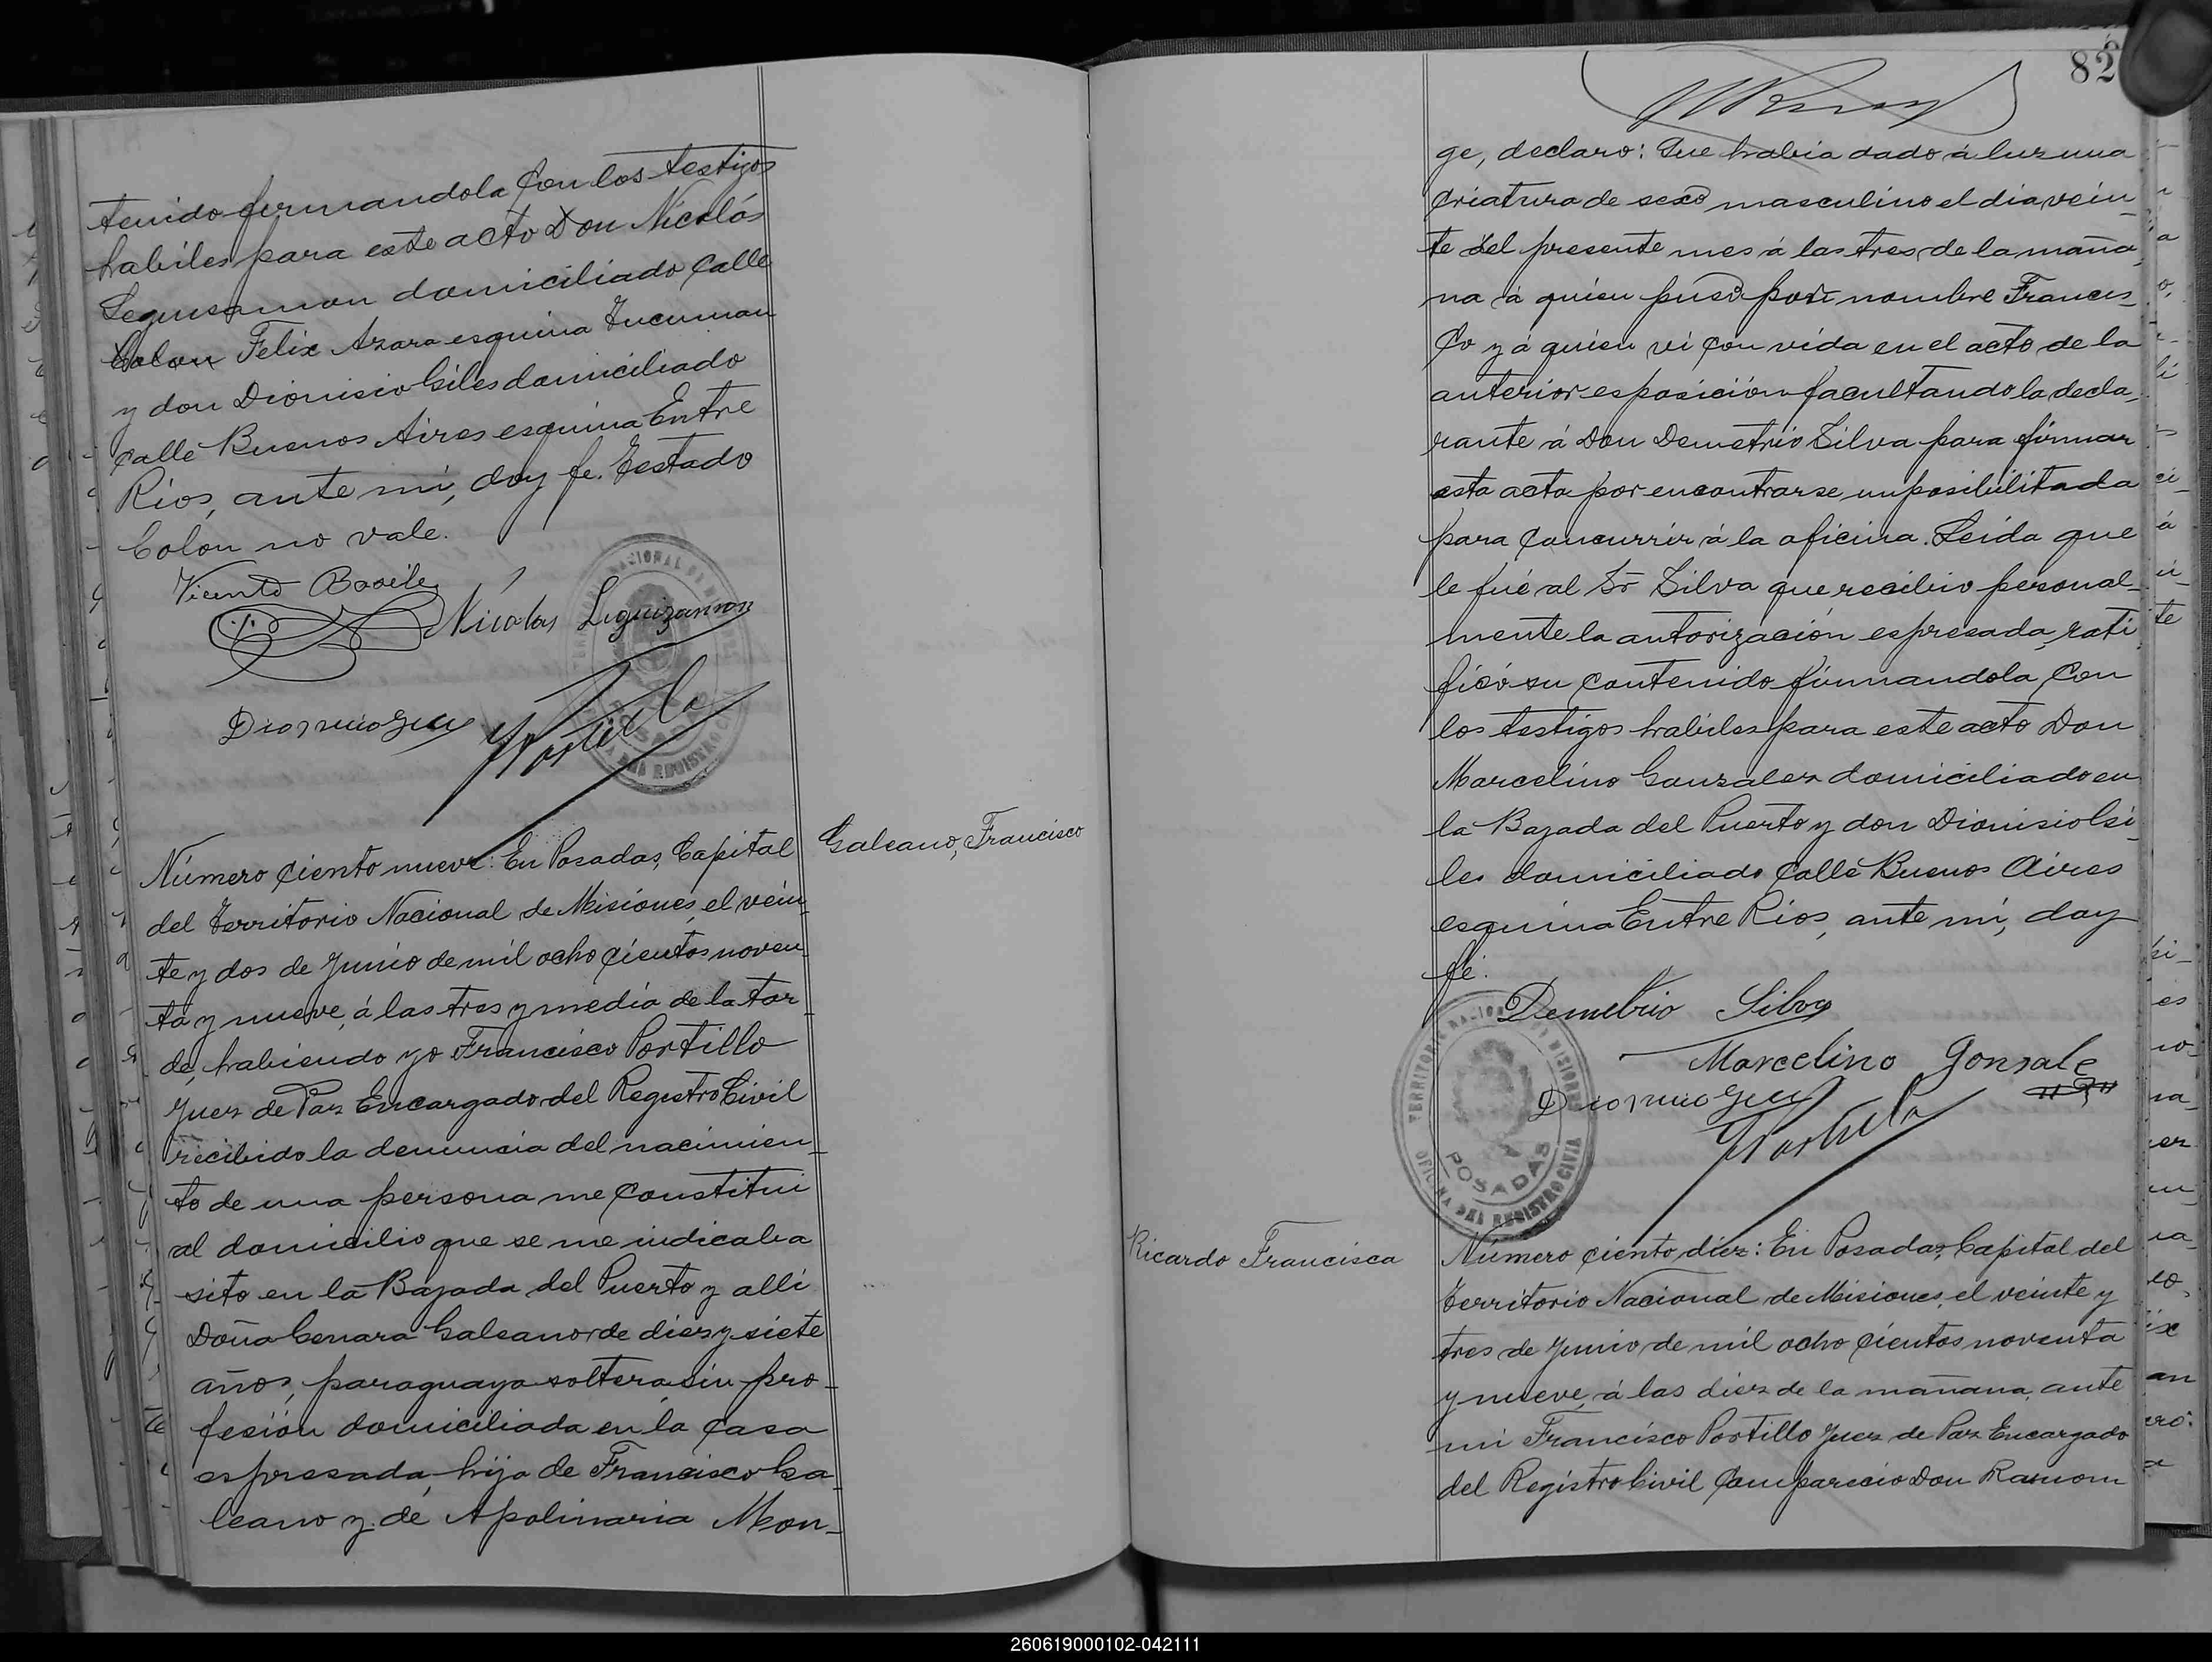 tenido firmandola con los testigos
habiles para este acto Don Nicolás
Leguisamon domiciliado calle
Colon Felix Azara esquina Tucuman
y don Dionisio Giles domiciliado
calle Buenos Aires esquina Entre
Rios, ante mi, doy fe. Testado
Colon no vale.
Vicente Basile
Nicolas Leguizamon
Dionicio Giles
F Portillo
Galeano, Francisco
Número ciento nueve: En Posadas, Capital
del Territorio Nacional de Misiones, el vein_
te y dos de Junio de mil ocho cientos noven_
ta y nueve, á las tres y media de la tar_
de, habiendo yo Francisco Portillo
Juez de Paz Encargado del Registro Civil
recibido la denuncia del nacimien_
to de una persona me constitui
al domicilio que se me indicaba
sito en la Bajada del Puerto y alli
Doña Genara Galeano de diez y siete
años, paraguaya soltera, sin pro_
fesión domiciliada en la casa
espresada, hija de Francisco Ga_
leano y de Apolinaria Mon_
82
ge, declaro: Que habia dado á luz una
criatura de sexo masculino el dia vein_
te del presente mes á las tres de la maña_
na á quien puso por nombre Francis_
co y á quien vi con vida en el acto de la
anterior esposición facultando la decla_
rante á Don Demetrio Silva para firmar
esta acta por encontrarse imposibilitada
para concurrir á la oficina. Leida que
le fué al Sr Silva que recibio personal_
mente la autorización espresada, rati_
ficó su contenido firmandola con
los testigos habiles para este acto Don
Marcelino Gonzalez domiciliado en
la Bajada del Puerto y don Dionisio Gi_
les domiciliado calle Buenos Aires
esquina Entre Rios, ante mi, doy
fé.
Demetrio Silva
Marcelino Gonsale
Dionicio Giles
F Portillo
TERRITORIO NACIONAL DE MISIONES
POSADAS
OFICINA DEL REGISTRO CIVIL
Ricardo Francisca
Número ciento diez: En Posadas, Capital del
Territorio Nacional de Misiones, el veinte y
tres de Junio de mil ocho cientos noventa
y nueve, á las diez de la mañana, ante
mi Francisco Portillo Juez de Paz Encargado
del Registro Civil Comparecio Don Ramon
260619000102-042111